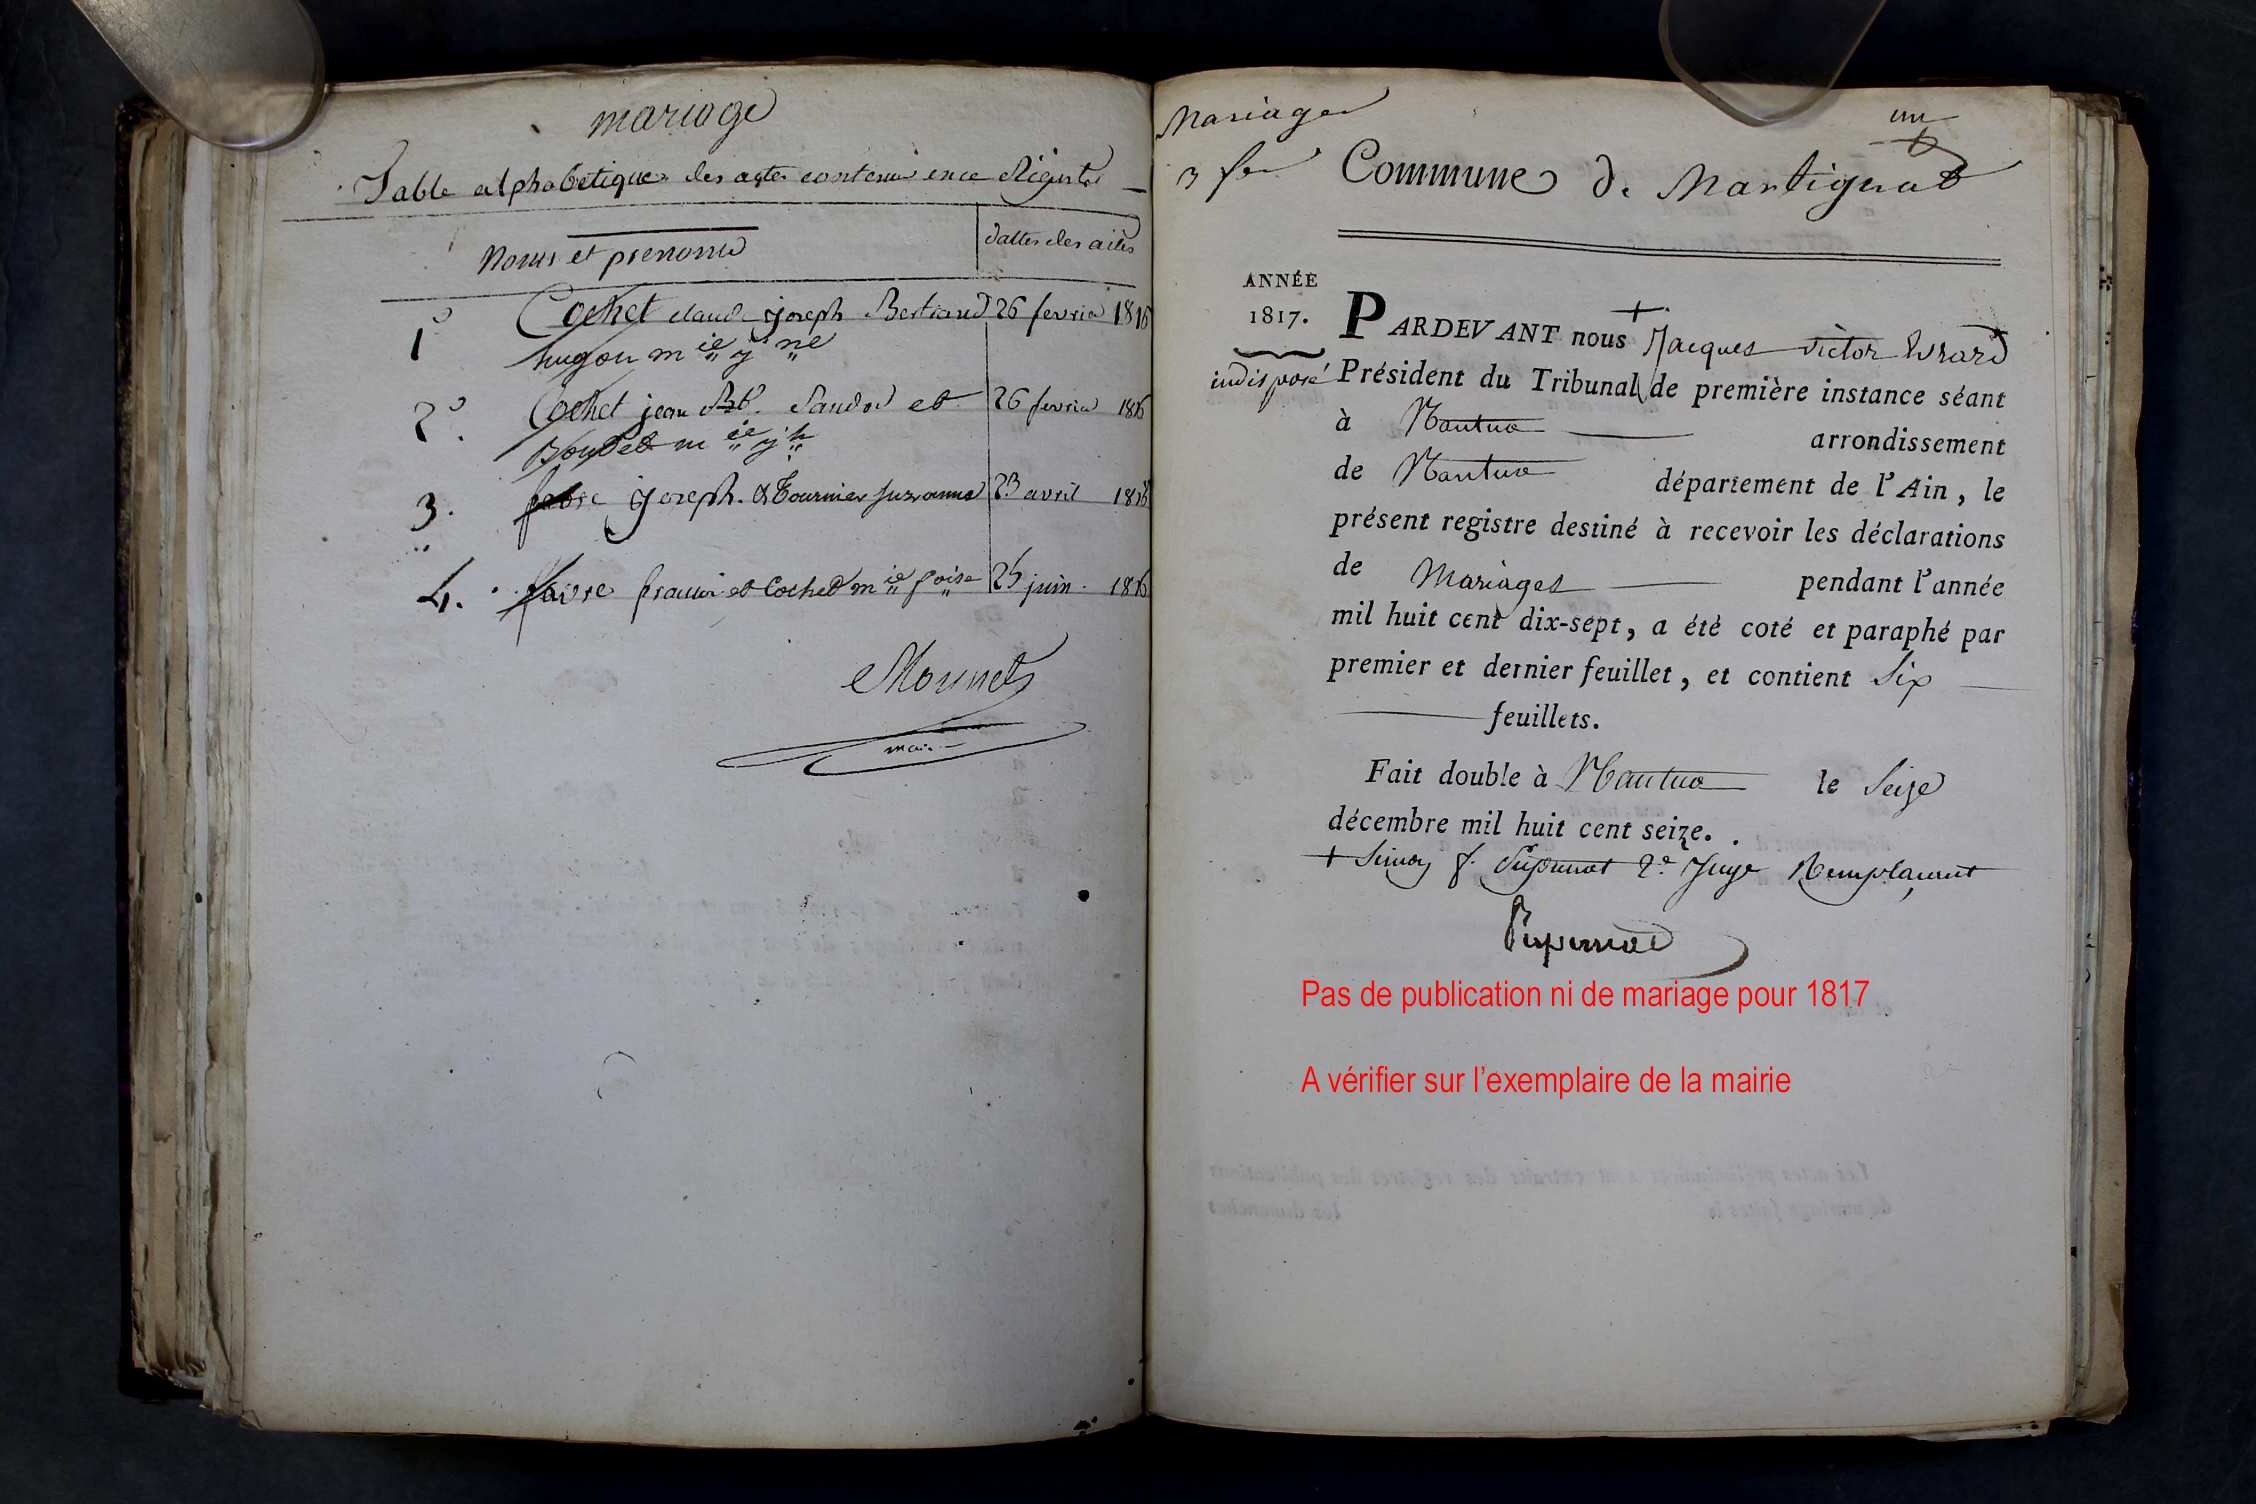 mariage
Table alphabetique des actes contenus en ce Registre
Noms et prenoms
dattes des actes
1º Cochet claude joseph Bertrand 26 fevrier 1816
hugon mie jne
2º. Cochet jean Bte. Sandoz et 26 fevrier 1816
mie jh
3. favre joseph & Tournier Suzanne 23 avril 1816
4. favre francois et Cochet mie foise 25 juin 1816
Monnet
maire
Mariages
3 fev
un
Commune de Martignat
ANNÉE
1817.
indisposé
PARDEVANT nous + Jacques victor Evrard
Président du Tribunal de première instance séant
à Nantua arrondissement
de Nantua département de l'Ain, le
présent registre destiné à recevoir les déclarations
de Mariages pendant l'année
mil huit cent dix-sept, a été coté et paraphé par
premier et dernier feuillet, et contient Six
feuillets.
Fait double à Nantua le Seize
décembre mil huit cent seize.
+ 2e Juge Remplaçant
Pas de publication ni de mariage pour 1817
A vérifier sur l'exemplaire de la mairie